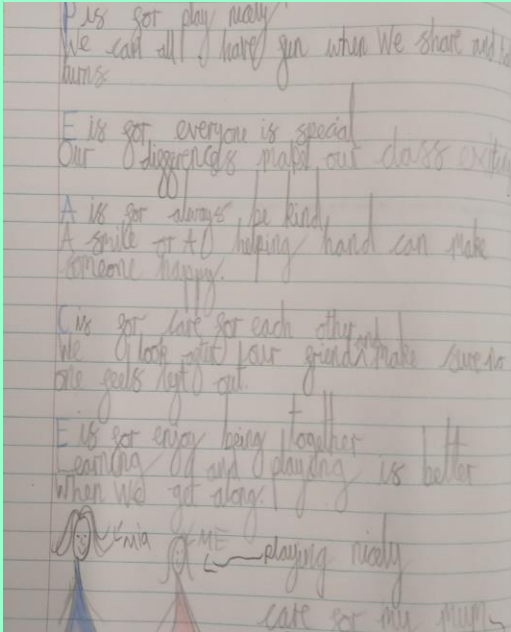 P is for play nicely
We can all have fun when We share and
turns
E is for everyone is special
Our differences make our class
A is for always be kind
A smile or A helping hand can make
someone happy.
C is for care for each other
We look after our friends and make sure no
one feels left out.
E is for enjoy being together
Learning and playing is better
When We get along.
Mia
ME
playing nicely
care for my mum